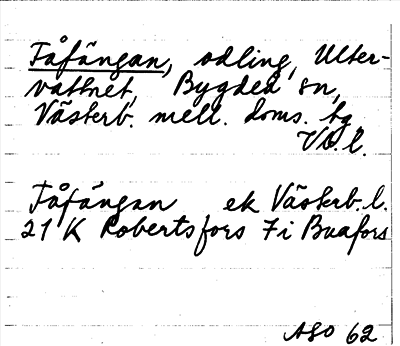 Fåfängan, odling, Ulter-
vattnet, Bygdeå sn,
Västerb. mell. doms. tg
Vb. l.
Fåfängan ek Västerb. l.
21 K Robertsfors 7 i Buafors
ASO 62